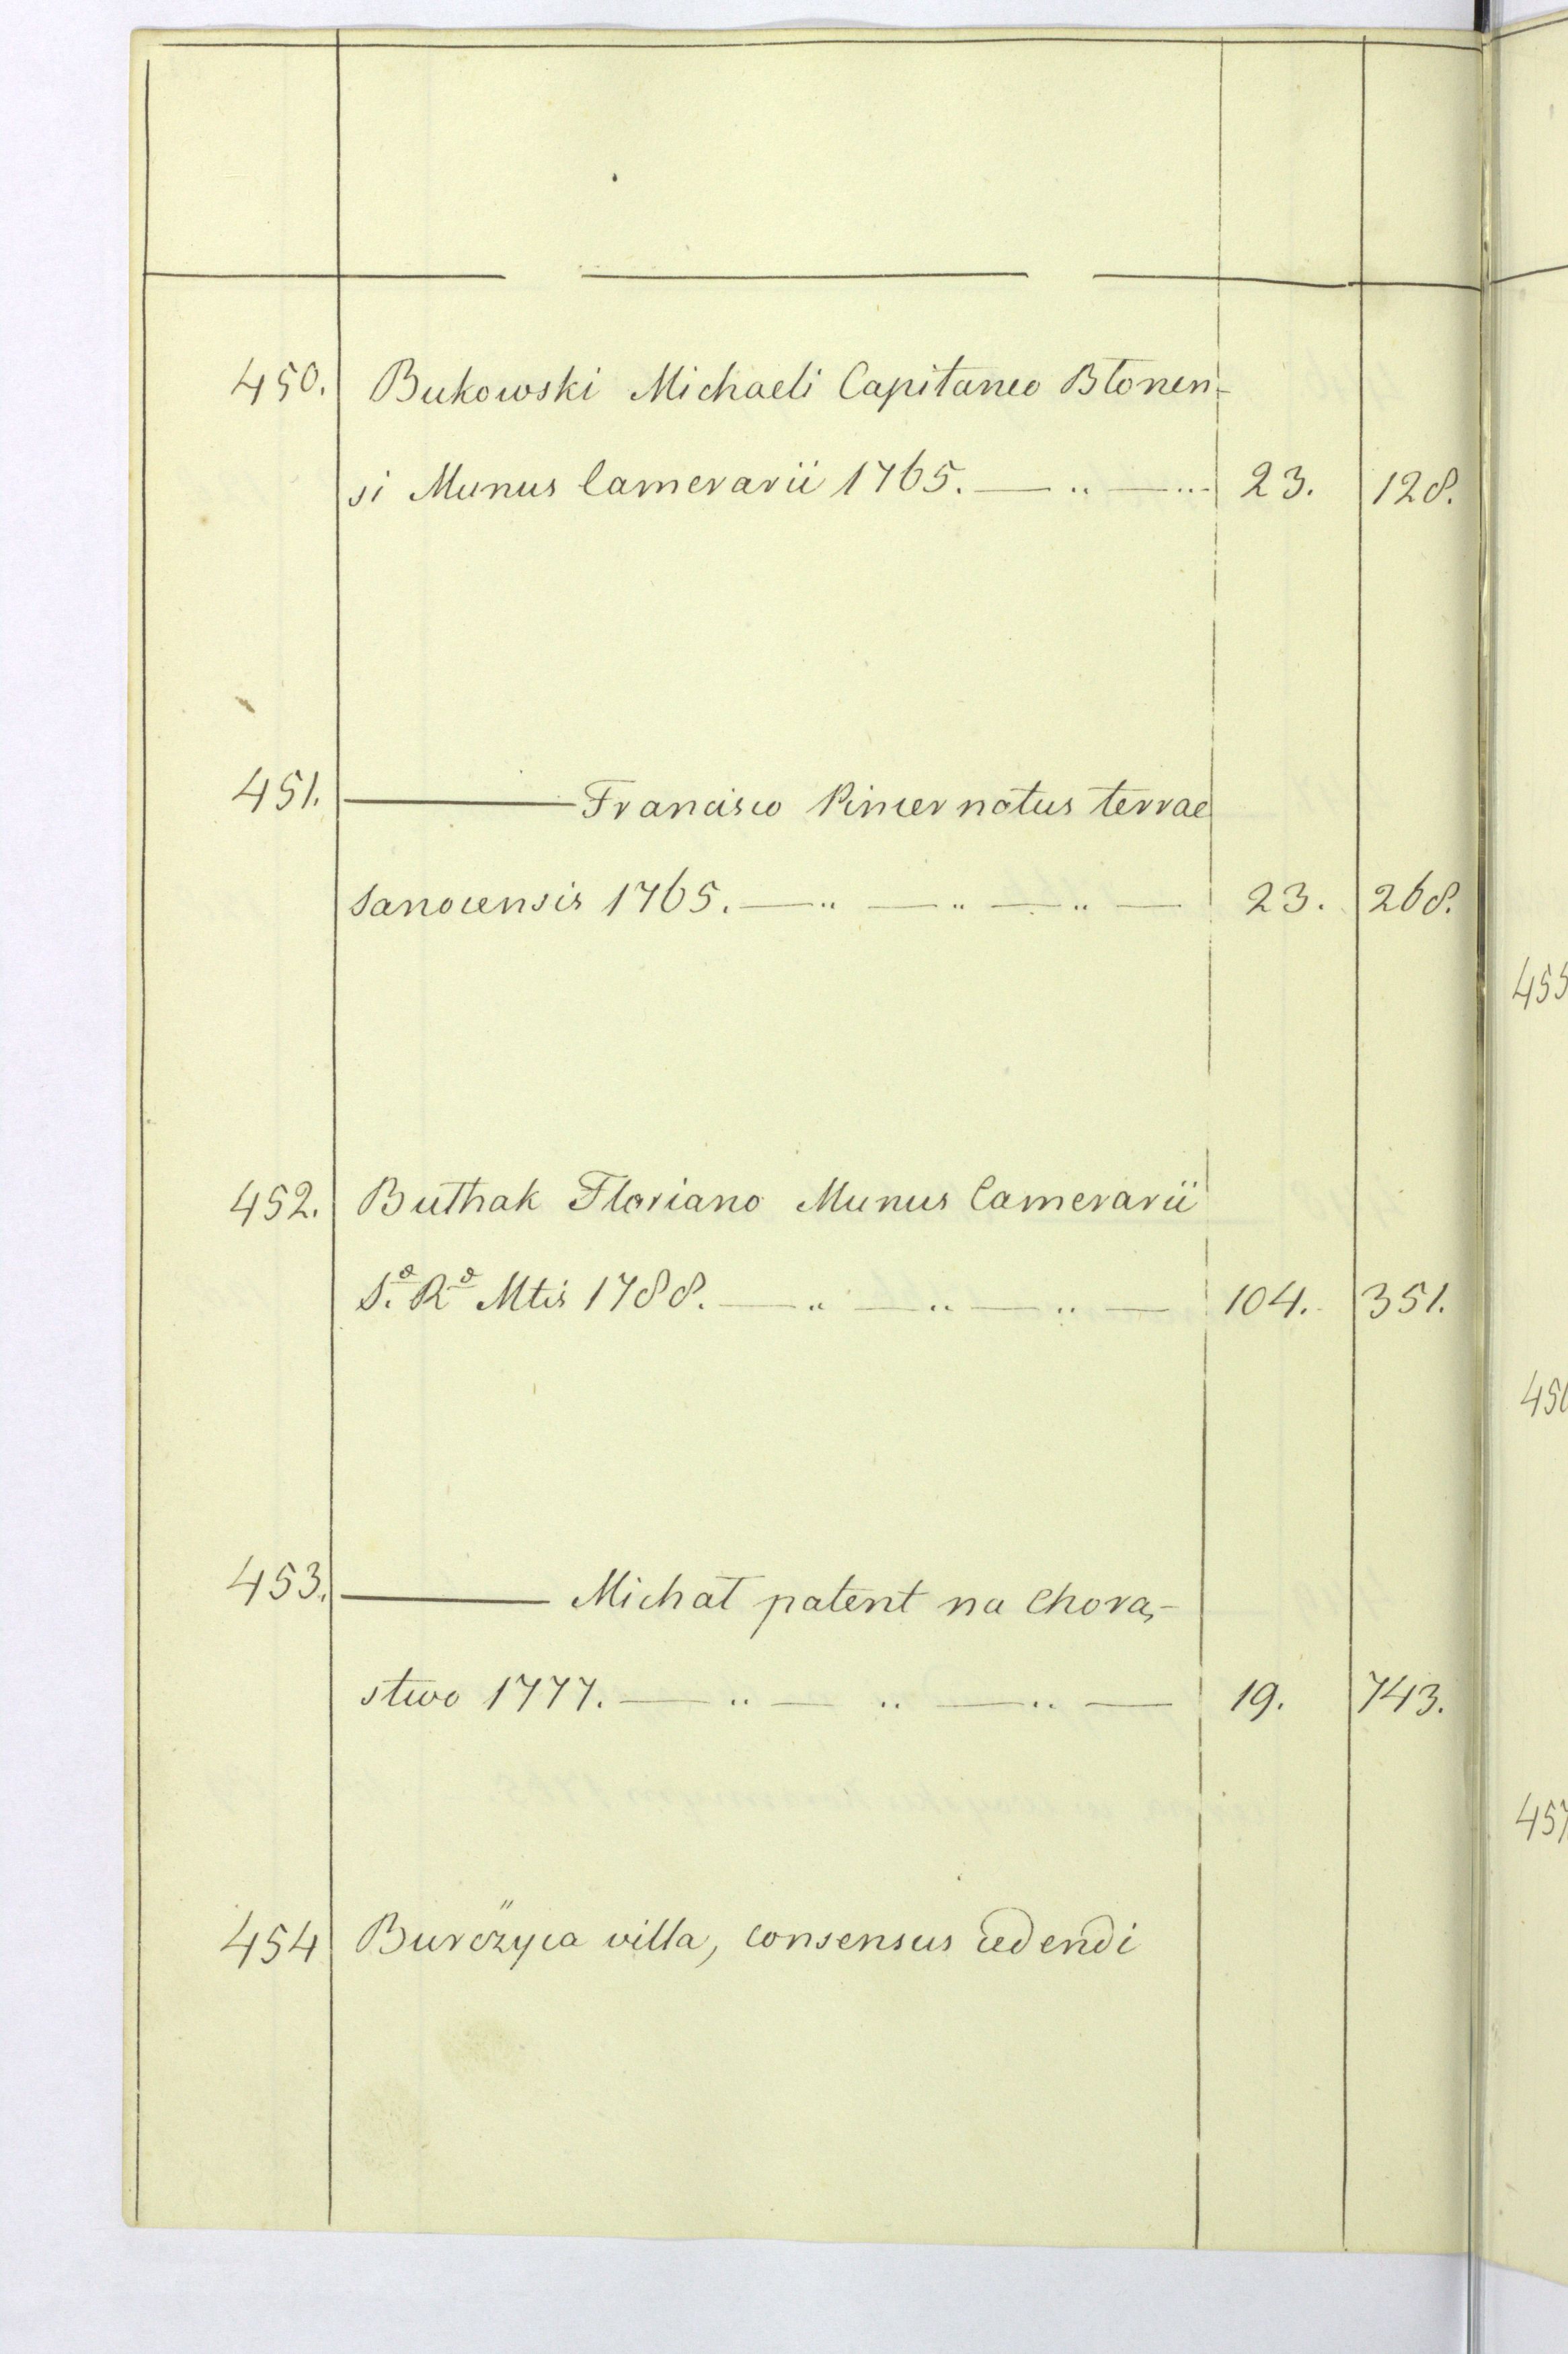 450. Bukowski Michaeli Capitaneo Błonen-
si Munus Camerarii 1765. — " — " 23. 128.
451. ——— Francisco Pincernatus terrae
Sanocensis 1765. — " — " — " — 23. 268.
452. Buthak Floriano Munus Camerarii
S. R. Mtis 1788. — " — " — " — 104. 351.
453. ——— Michał patent na Chorą-
stwo 1777. — " — " — " — 19. 743.
454 Burczyca villa, consensus cedendi
455
456
457